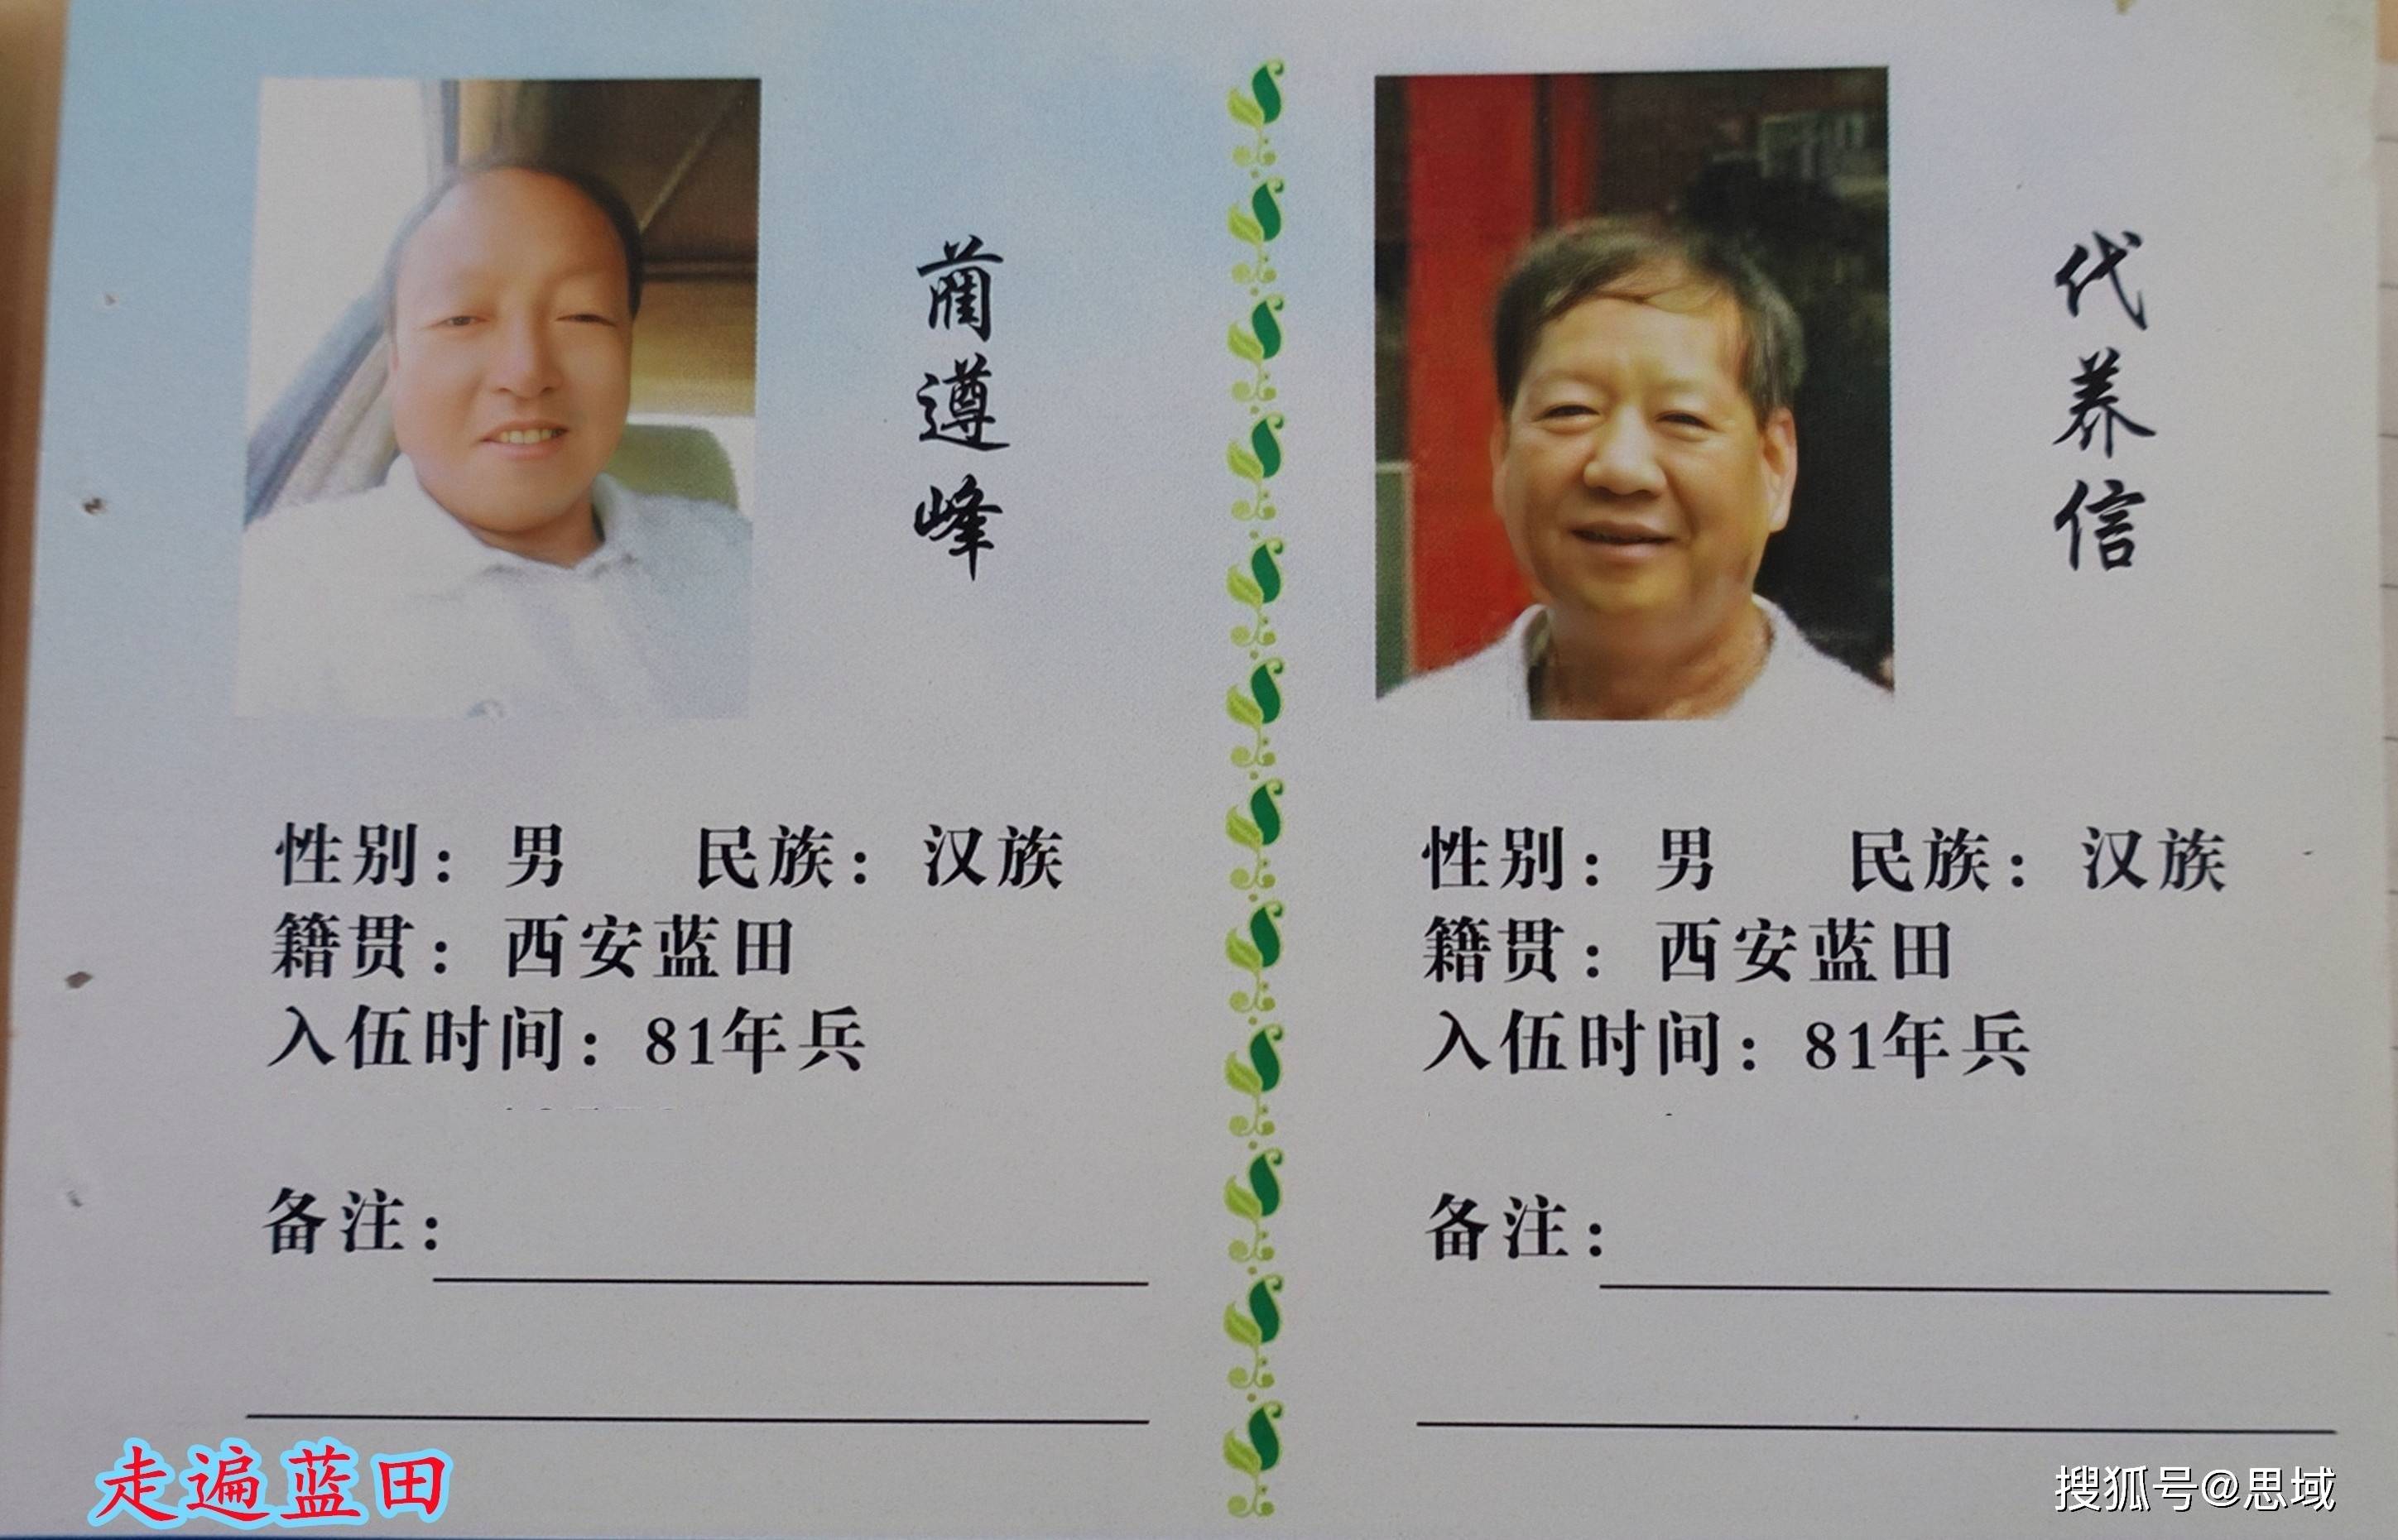 蔺遵峰
性别：男 民族：汉族
籍贯：西安蓝田
入伍时间：81年兵
备注：
代养信
性别：男 民族：汉族
籍贯：西安蓝田
入伍时间：81年兵
备注：
走遍蓝田
搜狐号@思域